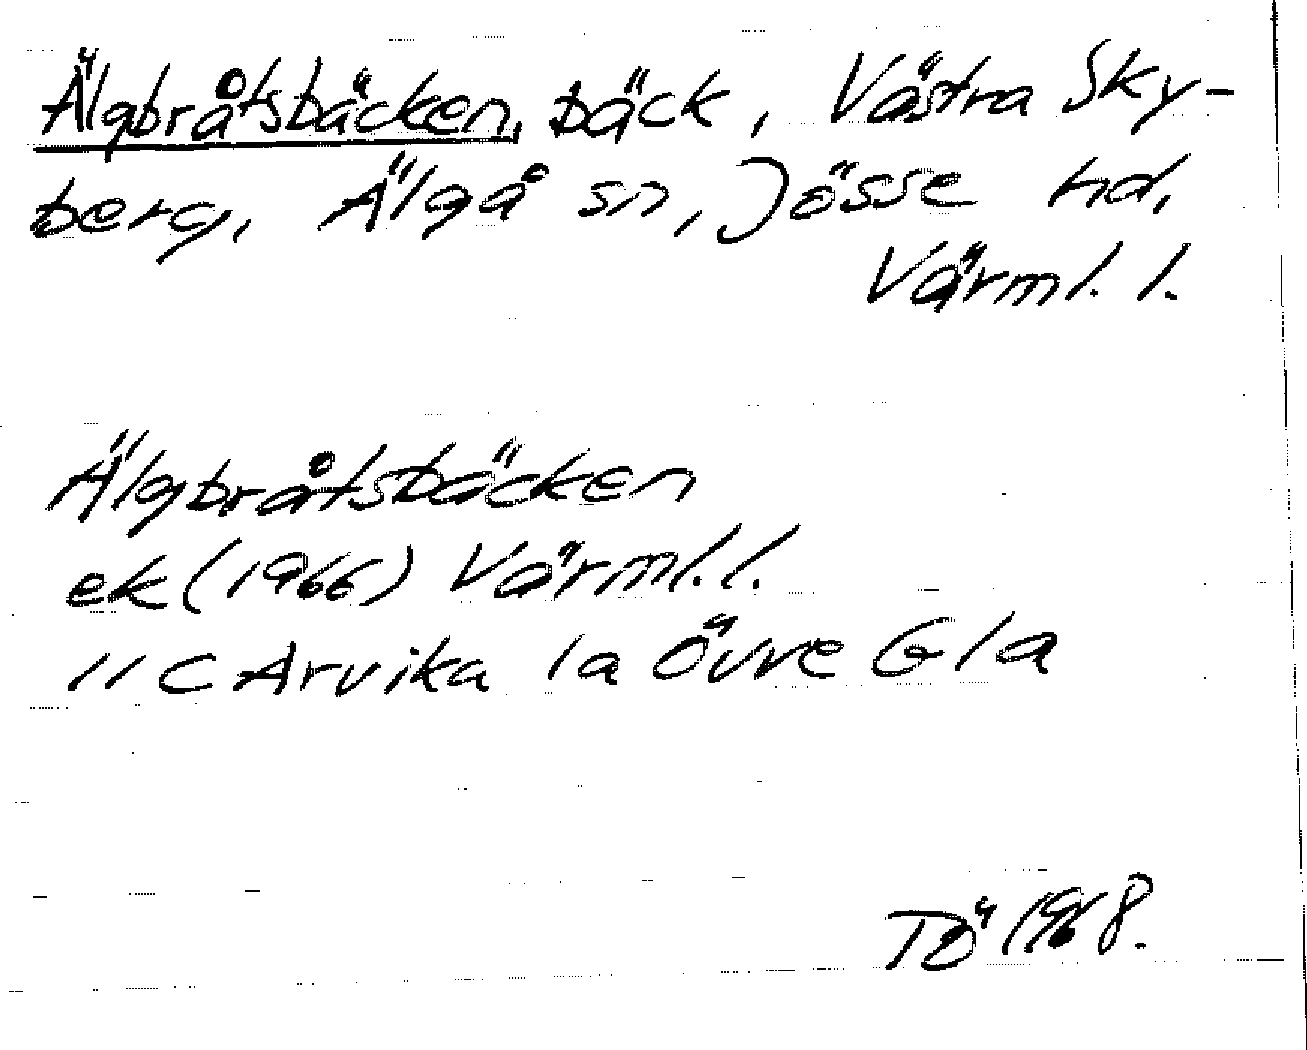 Älgbråtsbäcken, bäck, Västra Sky-
berg, Älgå sn, Jösse hd,
Värml. l.
Älgbråtsbäcken
ek (1966) Värml. l.
11 C Arvika 1a Övre Gla
TÖ 1968.